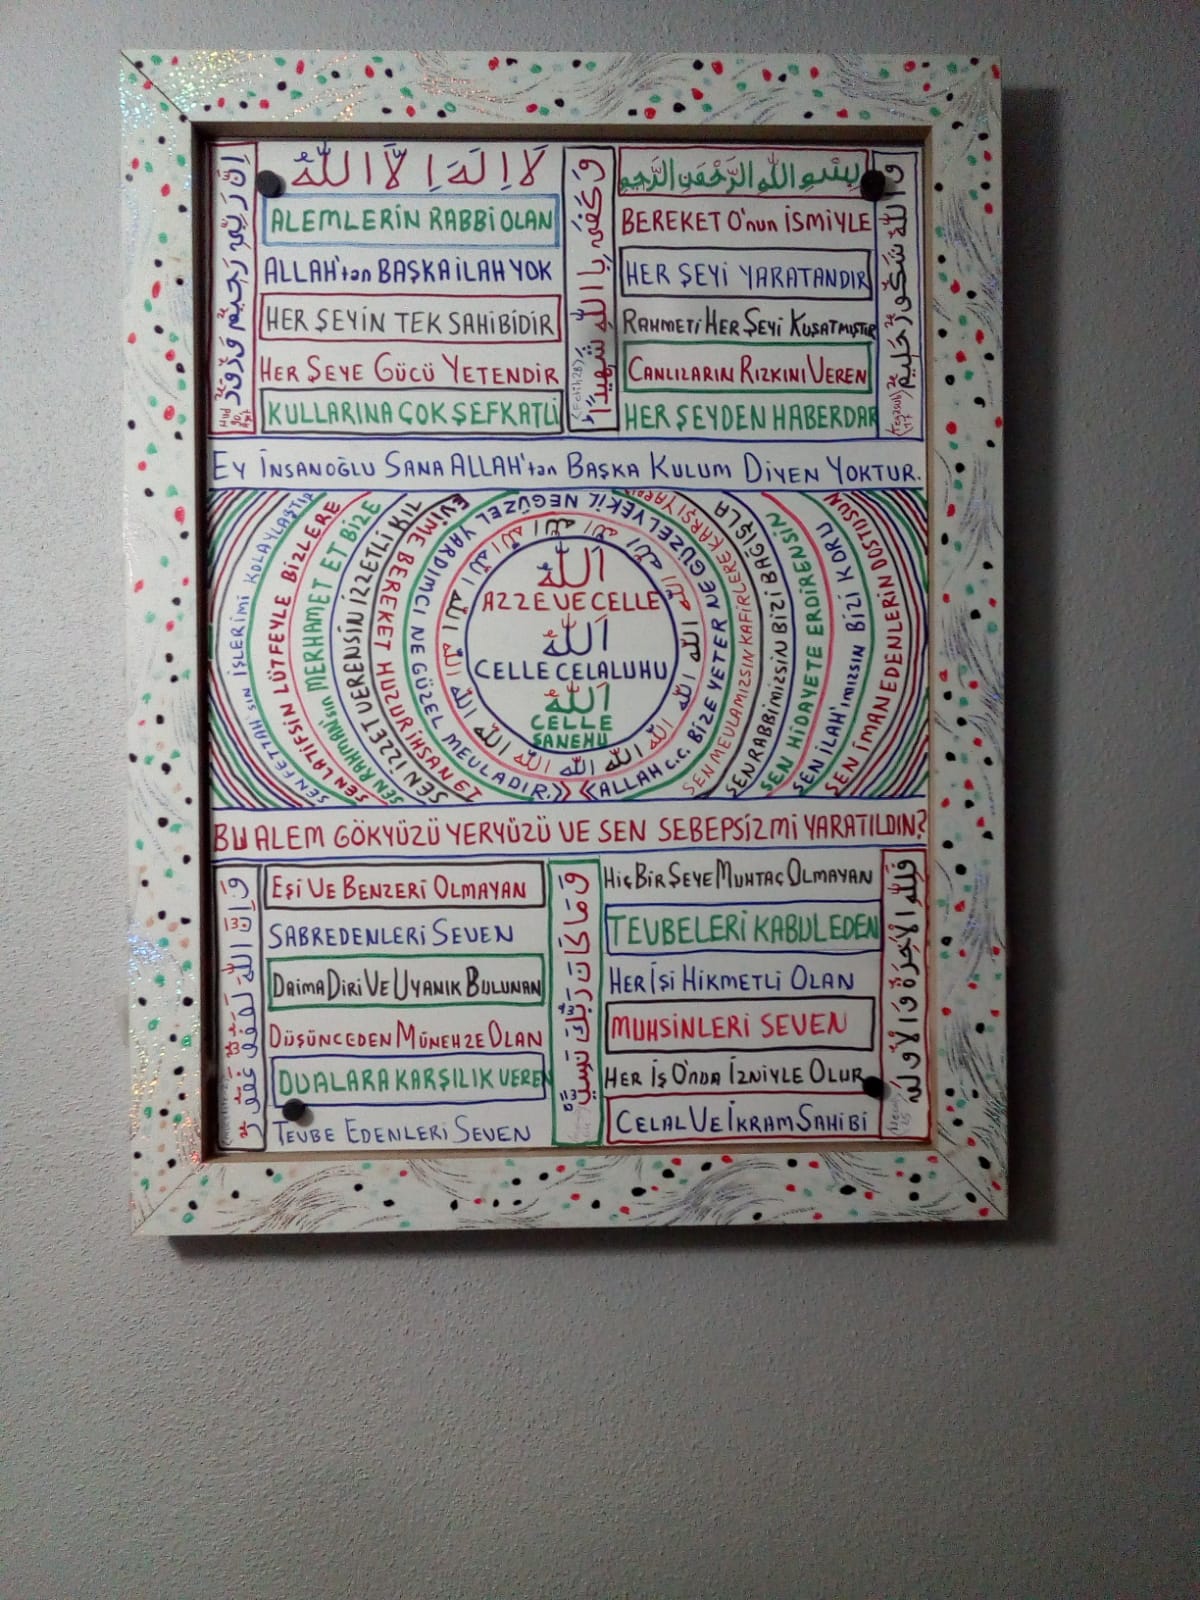 لَا اِلَهَ اِلَّا اللّٰهُ
ALEMLERİN RABBİ OLAN
ALLAH'tan BAŞKA İLAH YOK
HER ŞEYİN TEK SAHİBİDİR
HER ŞEYE GÜCÜ YETENDİR
KULLARINA ÇOK ŞEFKATLİ
اِنَّ رَبِّى رَحِيمٌ وَدُودٌ
وَكَفَى بِاللّٰهِ شَهِيدًا
(Fetih 28)
بِسْمِ اللّٰهِ الرَّحْمَنِ الرَّحِيمِ
BEREKET O'nun İSMİYLE
HER ŞEYİ YARATANDIR
RAHMETİ HER ŞEYİ KUŞATMIŞTIR
CANLILARIN RIZKINI VEREN
HER ŞEYDEN HABERDAR
وَاللّٰهُ شَكُورٌ حَلِيمٌ
EY İNSANOĞLU SANA ALLAH'tan BAŞKA KULUM DİYEN YOKTUR.
SEN FETTAH'SIN İŞLERİMİ KOLAYLAŞTIR
SEN LATİFSİN LÜTFEYLE BİZLERE
SEN RAHMAN'sın MERHAMET ET BİZE
SEN İZZET VERENSİN İZZETLİ KIL
EVİME BEREKET HUZUR İHSAN ET
《ALLAH C.C. BİZE YETER NE GÜZEL VEKİL NE GÜZEL YARDIMCI NE GÜZEL MEVLADIR.》
اللّٰه اللّٰه اللّٰه اللّٰه اللّٰه اللّٰه اللّٰه اللّٰه اللّٰه اللّٰه اللّٰه اللّٰه اللّٰه اللّٰه اللّٰه اللّٰه
اَللّٰهُ
AZZE VE CELLE
اَللّٰهُ
CELLE CELALUHU
اَللّٰهُ
CELLE
ŞANEHU
SEN MEVLAMIZSIN KAFİRLERE KARŞI YARDIM
SEN RABBİMİZSİN BİZİ BAĞIŞLA
SEN HİDAYETE ERDİRENSİN
SEN İLAH'ımızsın BİZİ KORU
SEN İMAN EDENLERİN DOSTUSUN
BU ALEM GÖKYÜZÜ YERYÜZÜ VE SEN SEBEPSİZ Mİ YARATILDIN?
وَاِنَّ اللّٰهَ لَعَفُوٌّ غَفُورٌ
EŞİ VE BENZERİ OLMAYAN
SABREDENLERİ SEVEN
DAİMA DİRİ VE UYANIK BULUNAN
DÜŞÜNCEDEN MÜNEHZE OLAN
DUALARA KARŞILIK VEREN
TEVBE EDENLERİ SEVEN
وَمَا كَانَ رَبُّكَ نَسِيًّا
HİÇ BİR ŞEYE MUHTAÇ OLMAYAN
TEVBELERİ KABUL EDEN
HER İŞİ HİKMETLİ OLAN
MUHSİNLERİ SEVEN
HER İŞ O'nDA İZNİYLE OLUR
CELAL VE İKRAM SAHİBİ
فَلِلّٰهِ الْاٰخِرَةُ وَالْاُولَى